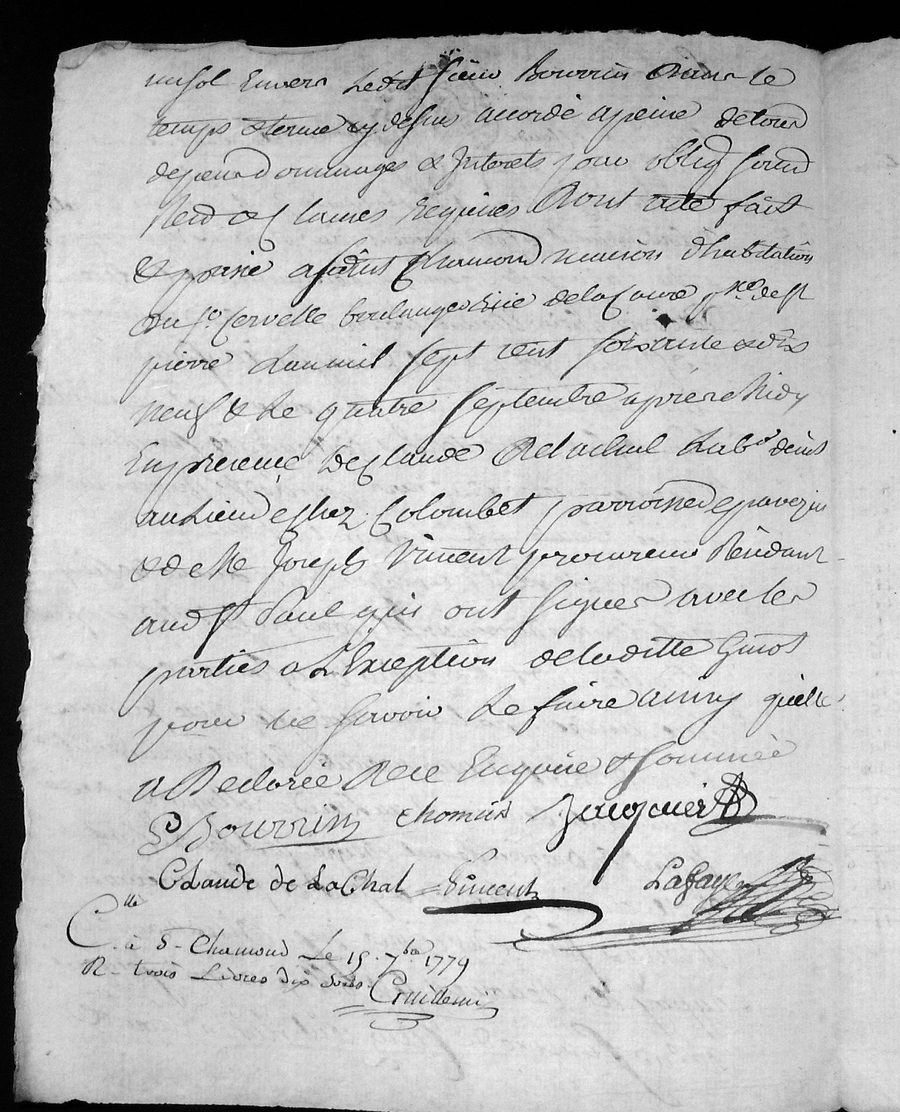 Envers Ledit sieur Bourrin dans le
temps & terme cy dessus accordé a peine de tous
depens dommages & Interets pour oblig soum
Ren & Clauses Requises Dont acte fait
& passé a saint Chamond maison d'habitation
du sr Cervelle boulanger de la
pierre L'an mil sept cent soixante & dix
neuf & Le quatre septembre après Midy
En presence De Claude Delachal Lab
au Lieu de chez Colombet parroisse de pavezin
& de Me Joseph Vincent procureur Résidant
aud st Paul qui ont signer avec les
parties a L'Exception de laditte Guiot
pour ne savoir Le faire ainsy qu'elle
a Declarée De ce Enquise & sommée
Bourrin chomas Jacquier
CLaude de LaChal Vincent Lafaye
C.lle à St Chamond Le 15 7bre 1779
R. trois Livres dix sous.